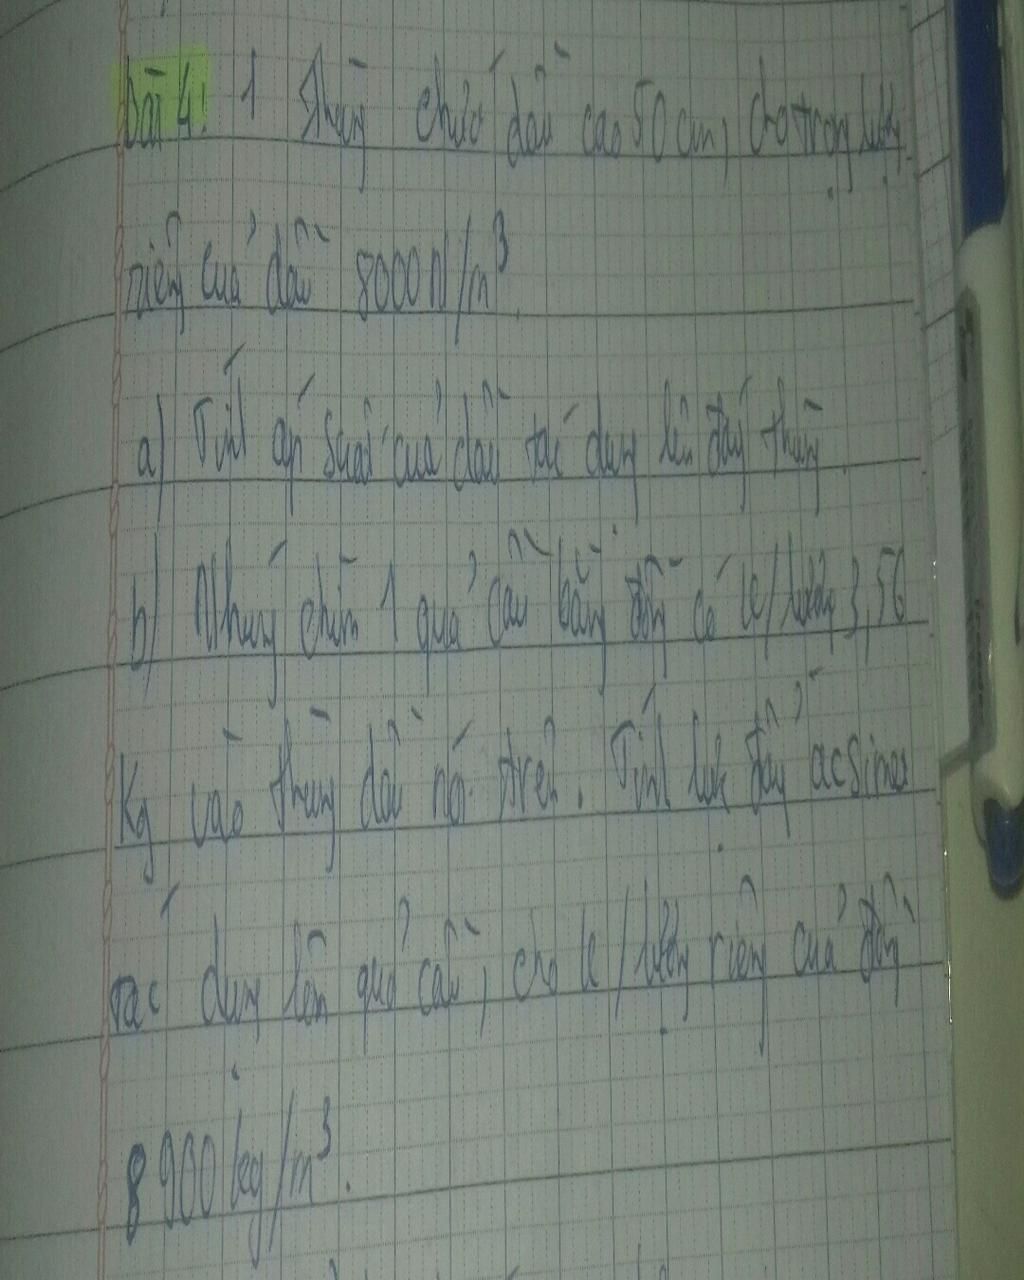 Bài 4: 1 thùng chứa dầu cao 50 cm, cho trọng lượng
riêng của dầu 8000N/m³.
a) Tính áp suất của dầu tác dụng lên đáy thùng.
b) Nhúng chìm 1 quả cầu bằng đồng có k/lượng 3,56
Kg vào thùng dầu nói trên. Tính lực đẩy acsimet
tác dụng lên quả cầu, cho k/lượng riêng của đồng
8900kg/m³.